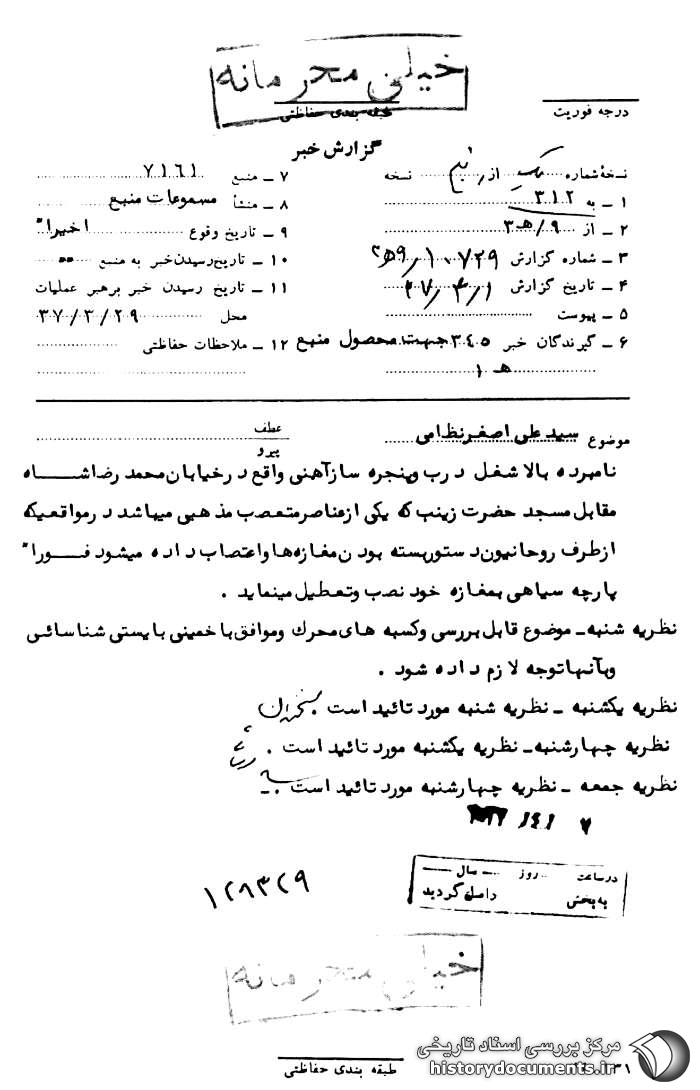 خیلی محرمانه
درجه فوریت
طبقه بندی حفاظتی
گزارش خبر
نسخهٔ شماره یک از پنج نسخه
۱ ـ به ۳۱۲
۲ ـ از ۹/هـ۳
۳ ـ شماره گزارش ۲۵۹/۱۰۷۲۹
۴ ـ تاریخ گزارش ۳۷/۴/۱
۵ ـ پیوست
۶ ـ گیرندگان خبر ۳۴۵ جهت محصول منبع
هـ ۱
۷ ـ منبع ۷۱۶۱
۸ ـ منشأ مسموعات منبع
۹ ـ تاریخ وقوع اخیراً
۱۰ ـ تاریخ رسیدن خبر به منبع ״״
۱۱ ـ تاریخ رسیدن خبر برهبر عملیات
محل ۳۷/۳/۲۹
۱۲ ـ ملاحظات حفاظتی
موضوع سید علی اصغر نظامی
عطف
پیرو
نامبرده بالا شغل درب وپنجره سازآهنی واقع درخیابان محمد رضا شاه
مقابل مسجد حضرت زینب که یکی ازعناصر متعصب مذهبی میباشد درمواقعیکه
ازطرف روحانیون دستوربسته بودن مغازه ها واعتصاب داده میشود فوراً
پارچه سیاهی بمغازه خود نصب وتعطیل مینماید .
نظریه شنبه ـ موضوع قابل بررسی وکسبه های محرک وموافق با خمینی بایستی شناسائی
وبآنها توجه لازم داده شود .
نظریه یکشنبه ـ نظریه شنبه مورد تائید است .
نظریه چهارشنبه ـ نظریه یکشنبه مورد تائید است .
نظریه جمعه ـ نظریه چهارشنبه مورد تائید است .
در ساعت روز سال
به بخش واصل گردید
۱۲۸۳۲۹
خیلی محرمانه
طبقه بندی حفاظتی
مرکز بررسی اسناد تاریخی
historydocuments.ir